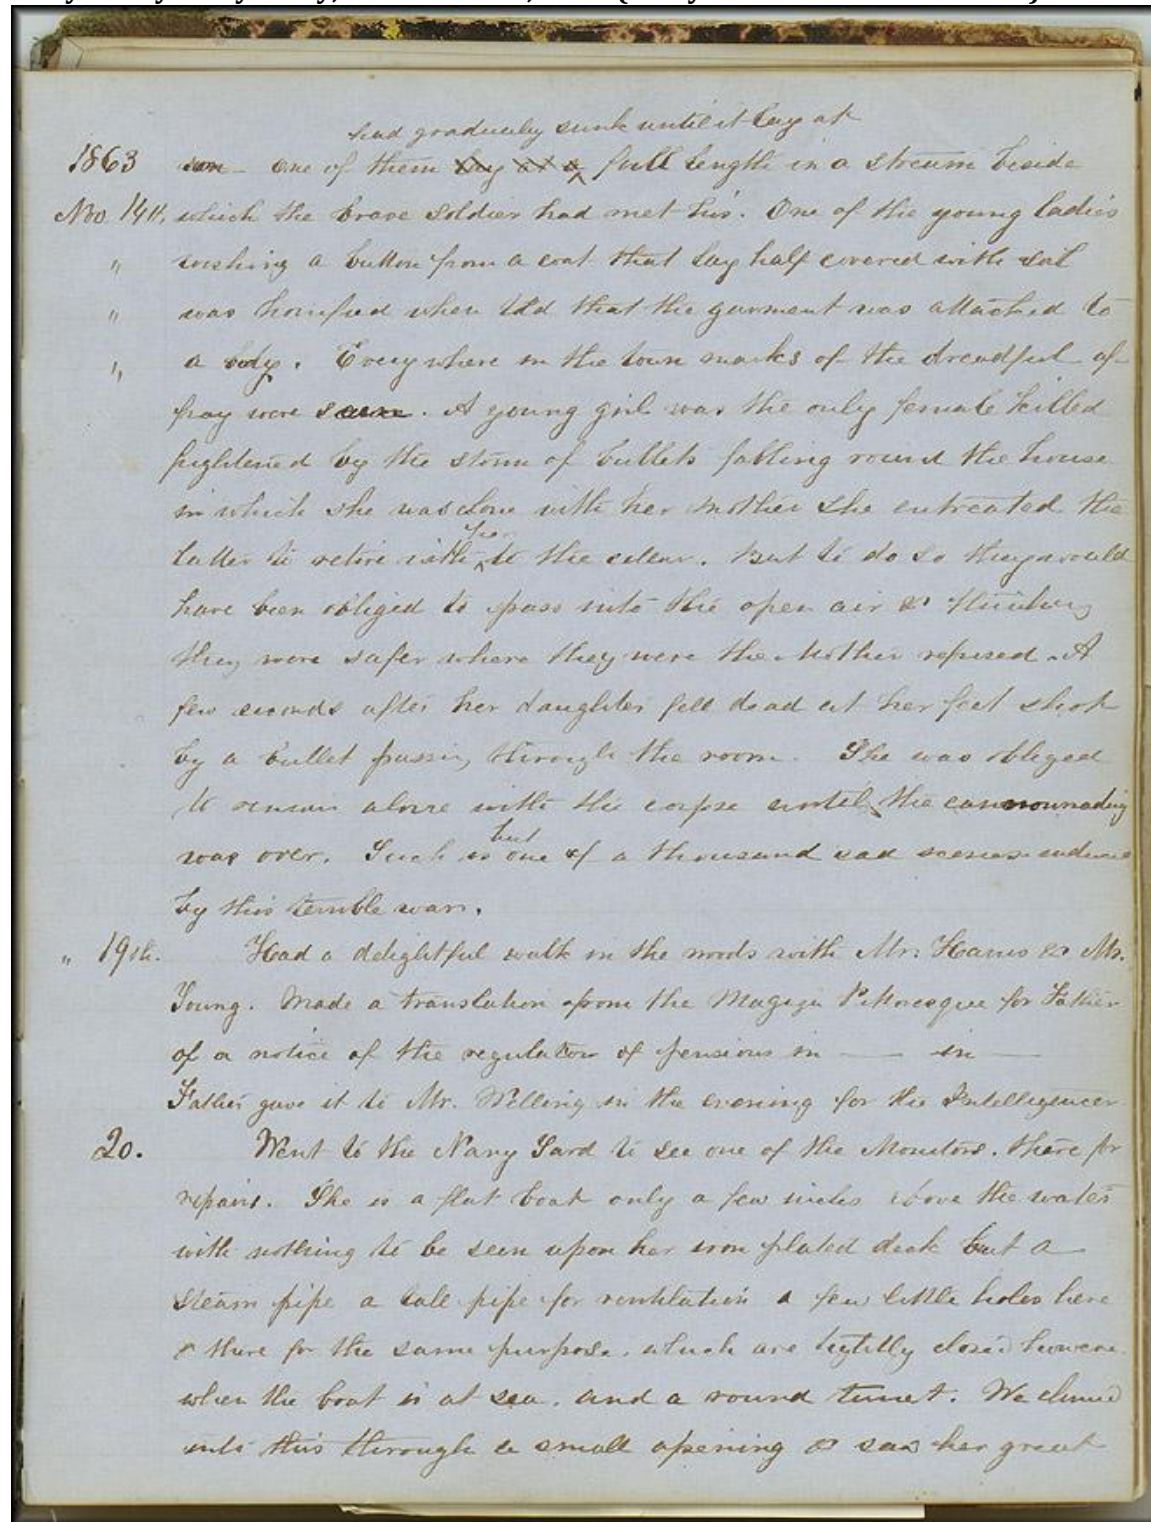 had gradually sunk until it lay at
1863 son - one of them lay at a full length in a stream beside
No. 14th, which the brave soldier had met his. One of the young ladies
" wishing a button from a coat that lay half covered with soil
" was horrified when told that the garment was attached to
" a body. Everywhere in the town marks of the dreadful af-
fray were seen. A young girl was the only female killed
frightened by the storm of bullets falling round the house
in which she was alone with her mother she entreated the
her
latter to retire with to the cellar. But to do so they would
have been obliged to pass into the open air & thinking
they were safer where they were the Mother refused. A
few seconds after her daughter fell dead at her feet shot
by a bullet passing through the room. She was obliged
to remain alone with the corpse until the cannonading
was over. Such is one of a thousand sad scenes
but
by this terrible war.
" 19th. Had a delightful walk in the woods with Mr. Harris & Mr.
Young. Made a translation from the Magazin Pittoresque for Father
of a notice of the regulation of pensions in — in —
Father gave it to Mr. Welling in the evening for the Intelligencer
20. Went to the Navy Yard to see one of the Monitors. there for
repairs. She is a flat boat only a few inches above the water
with nothing to be seen upon her iron plated deck but a
steam pipe a tall pipe for ventilation a few little holes here
& there for the same purpose. which are tightly closed however
when the boat is at sea. and a round turret. We climed
into this through a small opening & saw her great